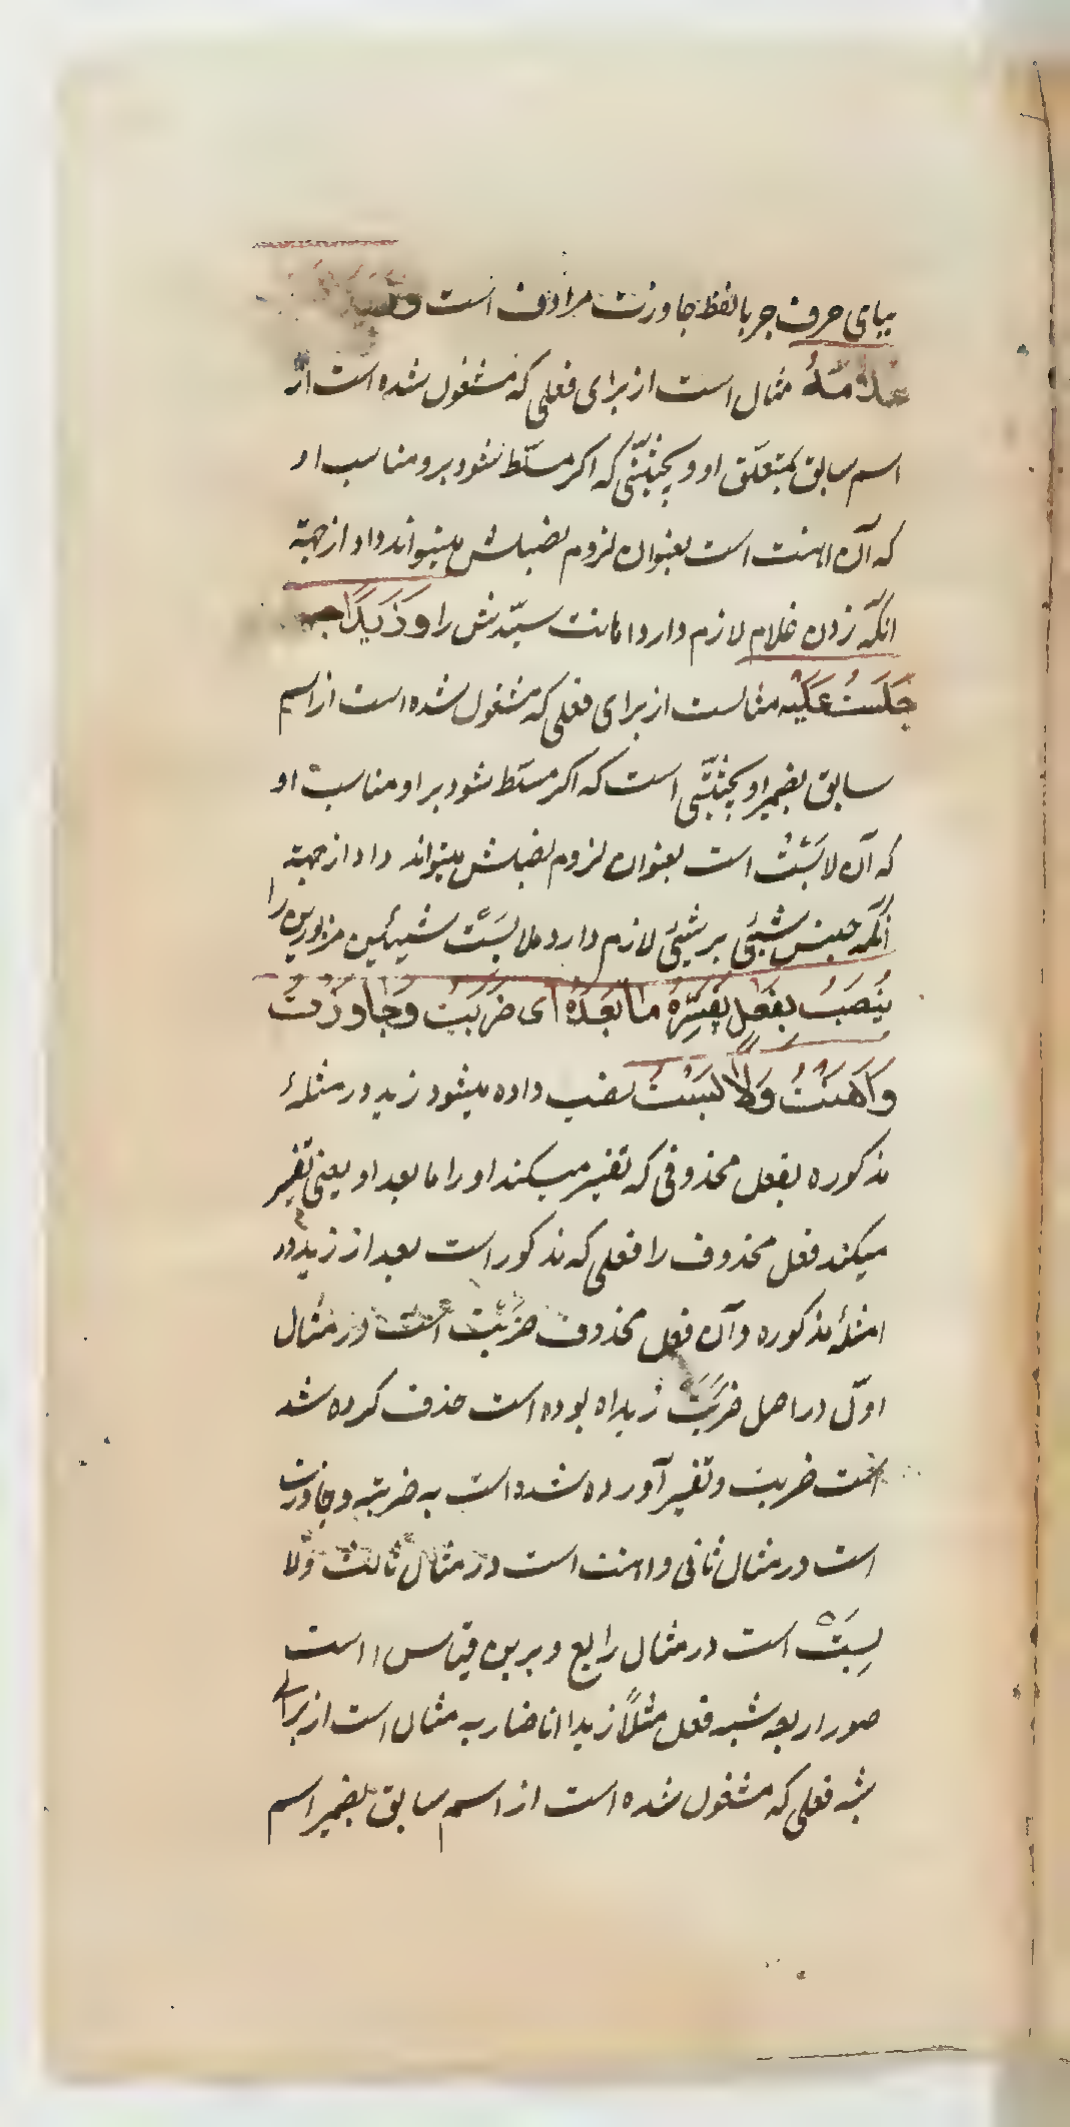 ببای حرف جر بالفظ جاوزت مرادف است
غلامهُ مثال است از برای فعلی که مشغول شده است از
اسم سابق بمتعلّق او و بحیثیّتی که اکر مسلّط شود برو مناسب او
که آن اهنت است بعنوان لزوم نصبش میتواند داد از جهة
انکه زدن غلام لازم دارد اهانت سیّدش را وَزَیدًا
جَلَستُ عَلَیْه مثالست از برای فعلی که مشغول شده است از اسم
سابق بضمیر او بحیثیّتی است که اکر مسلط شود بر او مناسب او
که آن لابَسْتُ است بعنوان لزوم نصبش میتواند داد از جهة
آنکه جلس شیئی بر شیئی لازم دارد ملابست شیئین مزبورین را
یُنصَبُ بِفعلٍ یُفَسِّرُهُ مَا بَعدَهُ ای ضَرَبتُ وَجَاوَزتُ
وَاَهَنتُ وَلَابَستُ نصب داده میشود زید در امثلهٔ
مذکوره بفعل محذوفی که تفسیر میکند او را ما بعد او یعنی تفسیر
میکند فعل محذوف را فعلی که مذکور است بعد از زید در
امثلهٔ مذکوره و آن فعل محذوف ضربت است در مثال
اوّل در اصل ضَرَبتُ زیدا بوده است حذف کرده شد
است ضربت و تفسیر آورده شده است به ضربته و جاوزت
است در مثال ثانی و اهنت است در مثال ثالث و لا
بستُ است در مثال رابع و برین قیاس است
صور اربعه شبه فعل مثلاً زیدا انا ضاربه مثال است از برای
شبه فعلی که مشغول شده است از اسم سابق بضمیر اسم